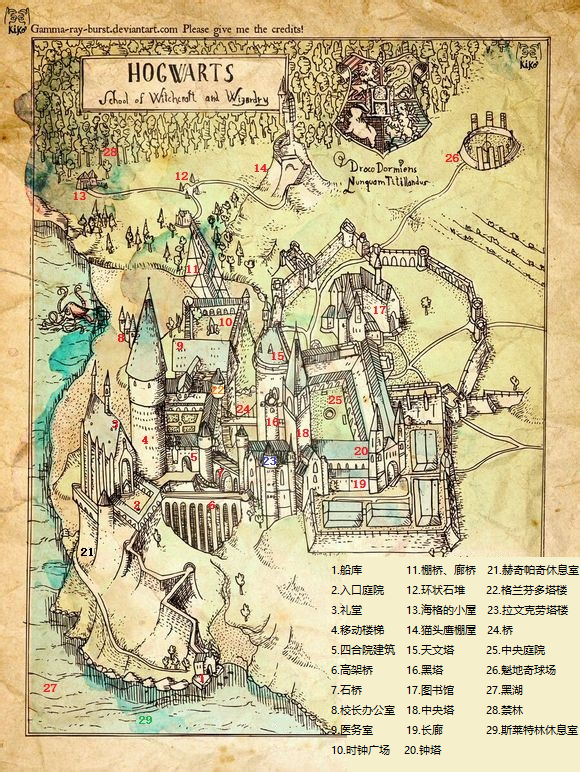 KiKo Gamma-ray-burst.deviantart.com Please give me the credits!
KiKo
HOGWARTS
School of Witchcraft and Wizardry
Draco Dormiens
Nunquam Titillandus
28
14
26
12
13
11
17
10
8
9
15
22
25
24
3
16
4
18
20
5
23
7
19
2
6
21
1
27
29
1.船库 11.棚桥、廊桥 21.赫奇帕奇休息室
2.入口庭院 12.环状石堆 22.格兰芬多塔楼
3.礼堂 13.海格的小屋 23.拉文克劳塔楼
4.移动楼梯 14.猫头鹰棚屋 24.桥
5.四合院建筑 15.天文塔 25.中央庭院
6.高架桥 16.黑塔 26.魁地奇球场
7.石桥 17.图书馆 27.黑湖
8.校长办公室 18.中央塔 28.禁林
9.医务室 19.长廊 29.斯莱特林休息室
10.时钟广场 20.钟塔